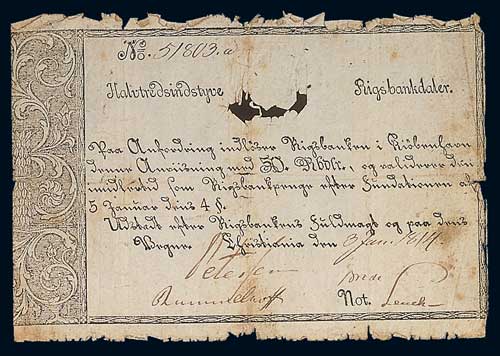 No. 51803.a
Halvtredsindstyve Rigsbankdaler.
Paa Anfordring indlöser Rigsbanken i Kiöbenhavn
denne Anviisning med 50. Rbdlr. og validerer den i
midlertid som Rigsbankpenge efter Fundationen af
5 Januar dens 4 §.
Udstædt efter Rigsbankens Fuldmagt og paa dens
Vegne. Christiania den 3 Jan. 1814.
Petersen
Rummelhoff Not. Leuch